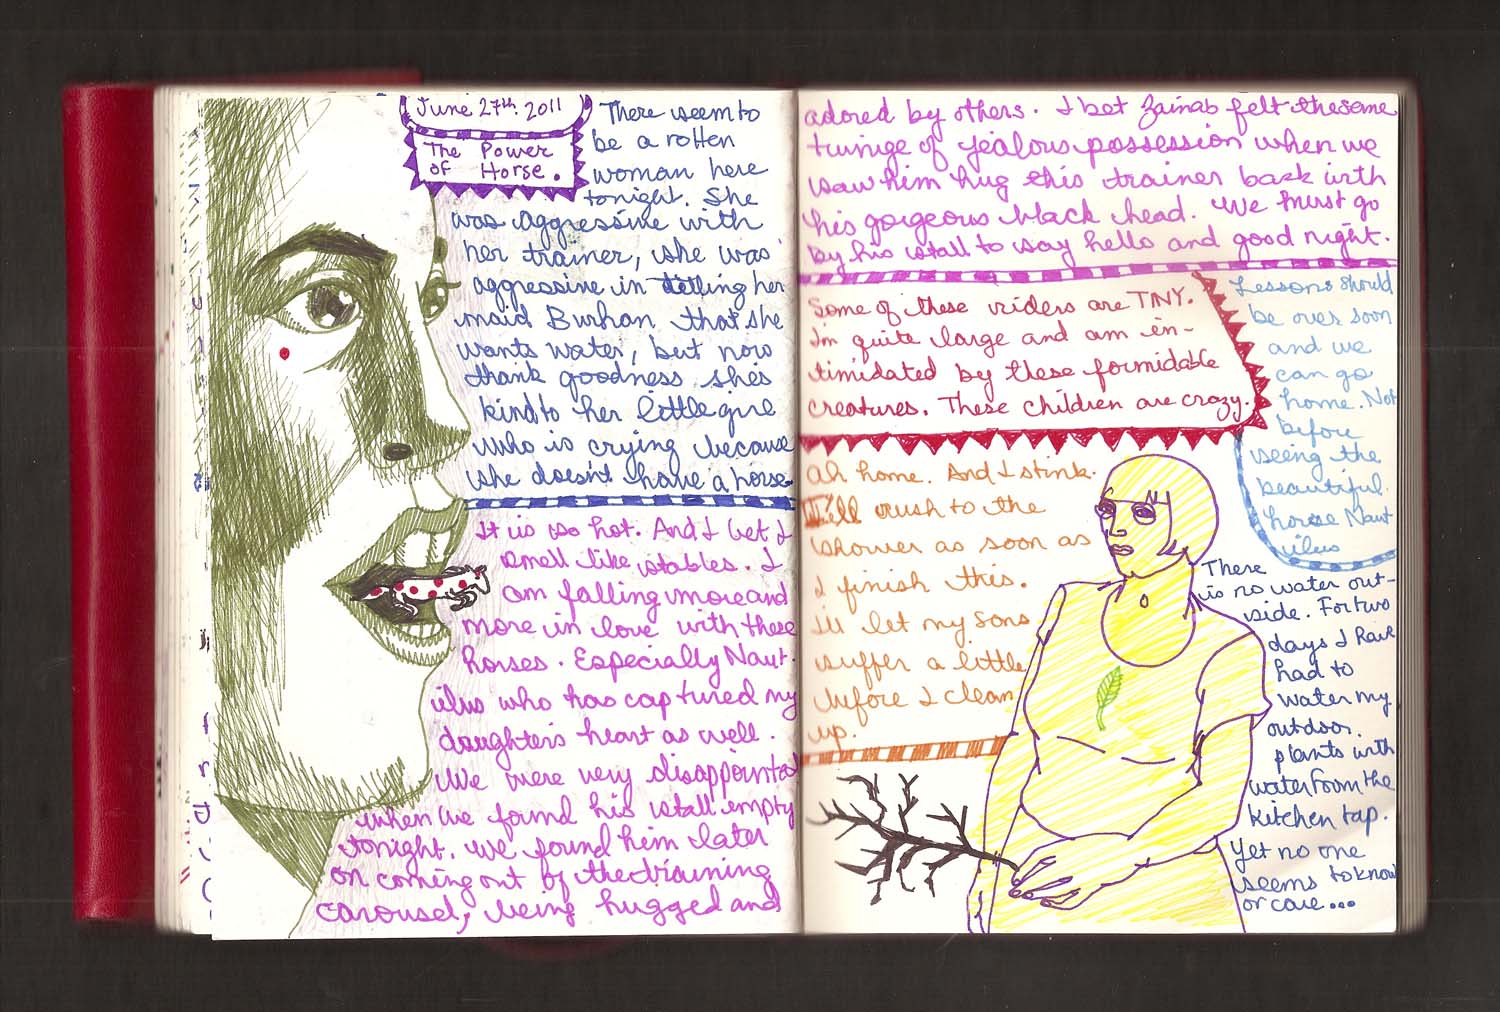 June 27th. 2011
The Power
of Horse.
There seem to
be a rotten
woman here
tonight. She
was aggressive with
her trainer, she was
aggressive in telling her
maid Burhan that she
wants water, but now
thank goodness she's
kind to her little girl
who is crying because
she doesn't have a horse.
It is so hot. And I bet I
smell like stables. I
am falling more and
more in love with these
horses. Especially Naut-
ilus who has captured my
daughter's heart as well.
We were very disappointed
when we found his stall empty
tonight. We found him later
on coming out of the training
carousel, being hugged and
adored by others. I bet Zainab felt the same
twinge of jealous possession when we
saw him hug this trainer back with
his gorgeous black head. We must go
by his stall to say hello and good night.
Some of these riders are TINY.
I'm quite large and am in-
timidated by these formidable
creatures. These children are crazy.
Lessons should
be over soon
and we
can go
home. Not
before
seeing the
beautiful
horse Naut
ilus
Ah home. And I stink.
I'll rush to the
shower as soon as
I finish this.
I'll let my sons
suffer a little
before I clean
up.
There
is no water out-
side. For two
days I have
had to
water my
outdoor
plants with
water from the
kitchen tap.
Yet no one
seems to know
or care...